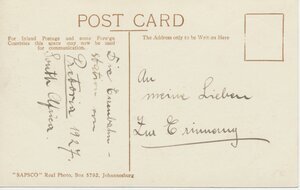 POST CARD
For Inland Postage and some Foreign
Countries this space may now be used
for communication.
The Address only to be Written Here
Die Eisenbahn-
station von
Pretoria 1927.
South Africa.
An
meine Lieben
Zur Erinnerung
"SAPSCO" Real Photo, Box 5792, Johannesburg